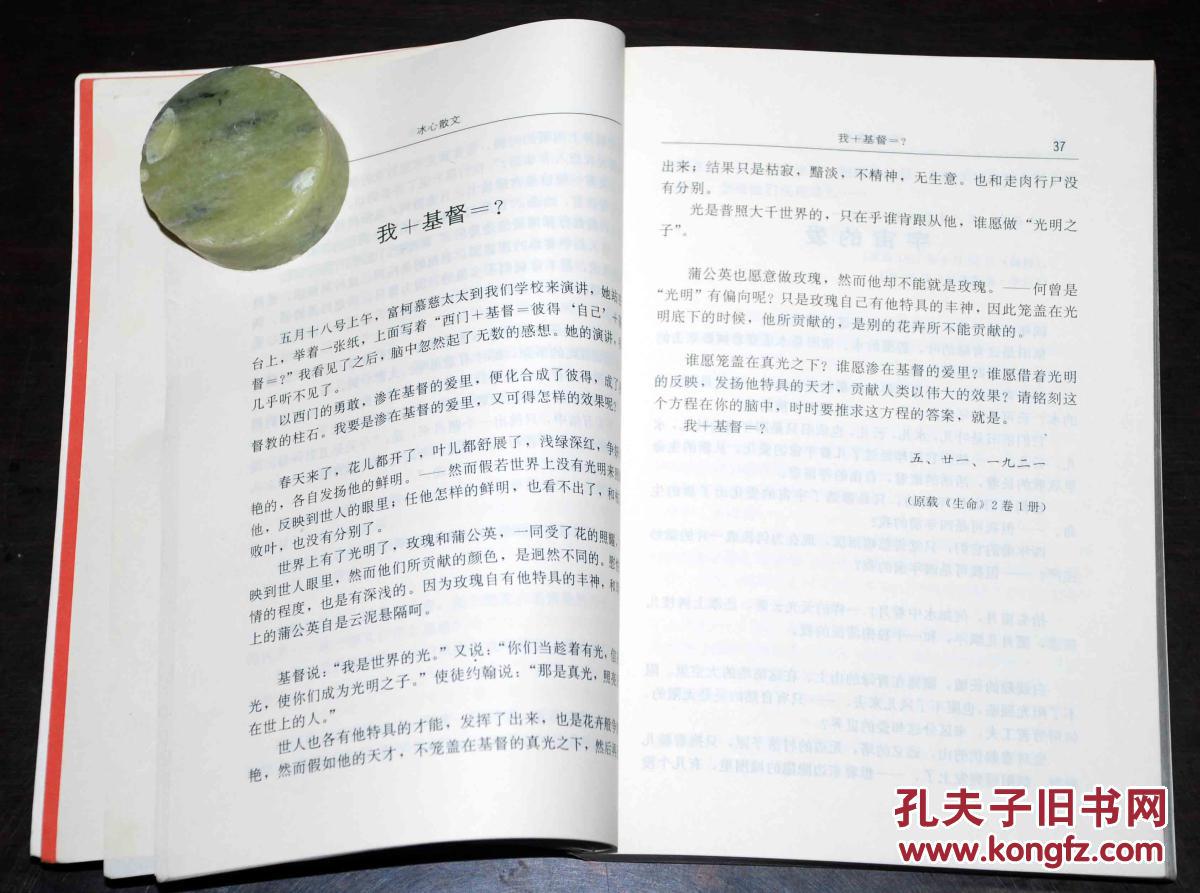 冰心散文
我+基督=?
五月十八号上午,富柯慕慈太太到我们学校来演讲,她站在
台上,举着一张纸,上面写着“西门+基督=彼得‘自己’+
督=?”我看见了之后,脑中忽然起了无数的感想。她的演讲,
几乎听不见了。
以西门的勇敢,渗在基督的爱里,便化合成了彼得,成了
督教的柱石。我要是渗在基督的爱里,又可得怎样的效果呢?
春天来了,花儿都开了,叶儿都舒展了,浅绿深红,争
艳的,各自发扬他的鲜明。——然而假若世界上没有光明来
他,反映到世人的眼里;任他怎样的鲜明,也看不出了,和
败叶,也没有分别了。
世界上有了光明了,玫瑰和蒲公英,一同受了花的照耀,
映到世人眼里,然而他们所贡献的颜色,是迥然不同的。
情的程度,也是有深浅的。因为玫瑰自有他特具的丰神,和
上的蒲公英自是云泥悬隔呵。
基督说:“我是世界的光。”又说:“你们当趁着有光,信
光,使你们成为光明之子。”使徒约翰说:“那是真光,照亮
在世上的人。”
世人也各有他特具的才能,发挥了出来,也是花卉般争
艳,然而假如他的天才,不笼盖在基督的真光之下,然后
我+基督=?
37
出来;结果只是枯寂,黯淡,不精神,无生意。也和走肉行尸没
有分别。
光是普照大千世界的,只在乎谁肯跟从他,谁愿做“光明之
子”。
蒲公英也愿意做玫瑰,然而他却不能就是玫瑰。——何曾是
“光明”有偏向呢?只是玫瑰自己有他特具的丰神,因此笼盖在光
明底下的时候,他所贡献的,是别的花卉所不能贡献的。
谁愿笼盖在真光之下?谁愿渗在基督的爱里?谁愿借着光明
的反映,发扬他特具的天才,贡献人类以伟大的效果?请铭刻这
个方程在你的脑中,时时要推求这方程的答案,就是。
我+基督=?
五、廿二、一九二一
(原载《生命》2卷1册)
孔夫子旧书网
www.kongfz.com